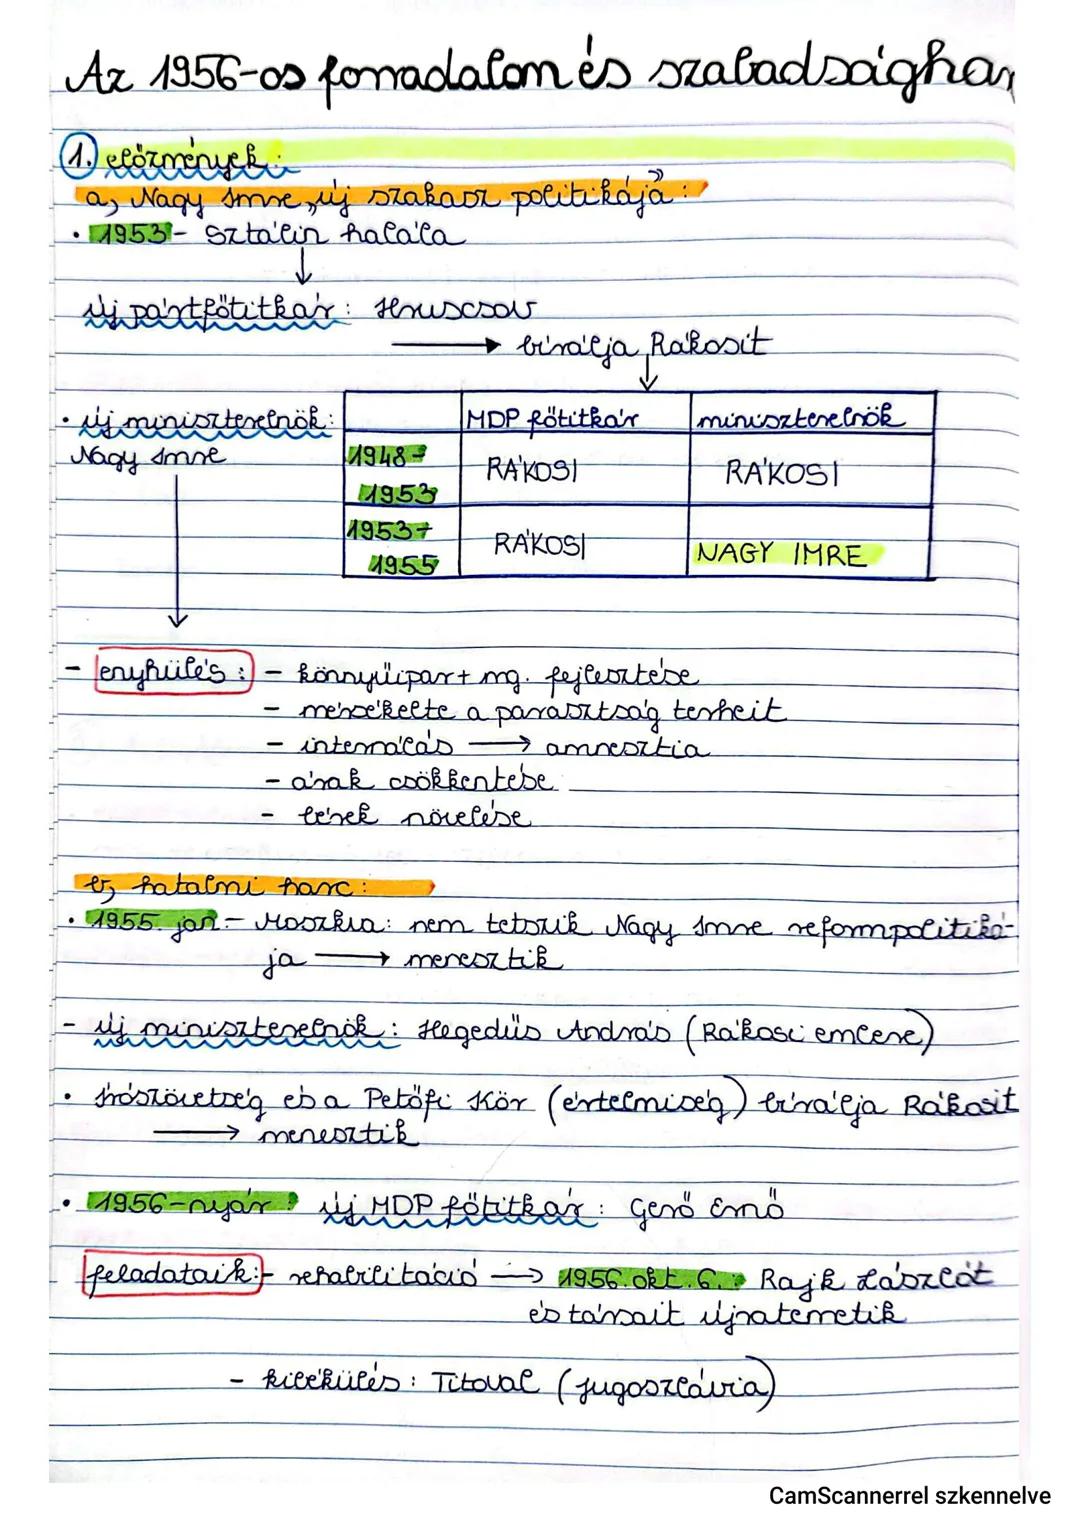 Az 1956-os forradalom és szabadsághar
1. előzmények:
a, Nagy Imre „új szakasz politikája":
• 1953 - Sztálin halála
↓
új pártfőtitkár: Hruscsov
→ bírálja Rákosit
↓
• új miniszterelnök:
Nagy Imre
MDP főtitkár miniszterelnök
1948-1953 RÁKOSI RÁKOSI
1953-1955 RÁKOSI NAGY IMRE
- enyhülés: - könnyűipar + mg. fejlesztése
- mérsékelte a parasztság terheit
- internálás → amnesztia
- árak csökkentése
- bérek növelése
b, hatalmi harc:
• 1955. jan - Moszkva: nem tetszik Nagy Imre reformpolitiká-
ja → menesztik
- új miniszterelnök: Hegedüs András (Rákosi embere)
• Írószövetség és a Petőfi Kör (értelmiség) bírálja Rákosit
→ menesztik
• 1956-nyár: új MDP főtitkár: Gerő Ernő
feladataik: - rehabilitáció → 1956. okt. 6. Rajk Lászlót
és társait újratemetik
- kibékülés: Titoval (Jugoszlávia)
CamScannerrel szkennelve